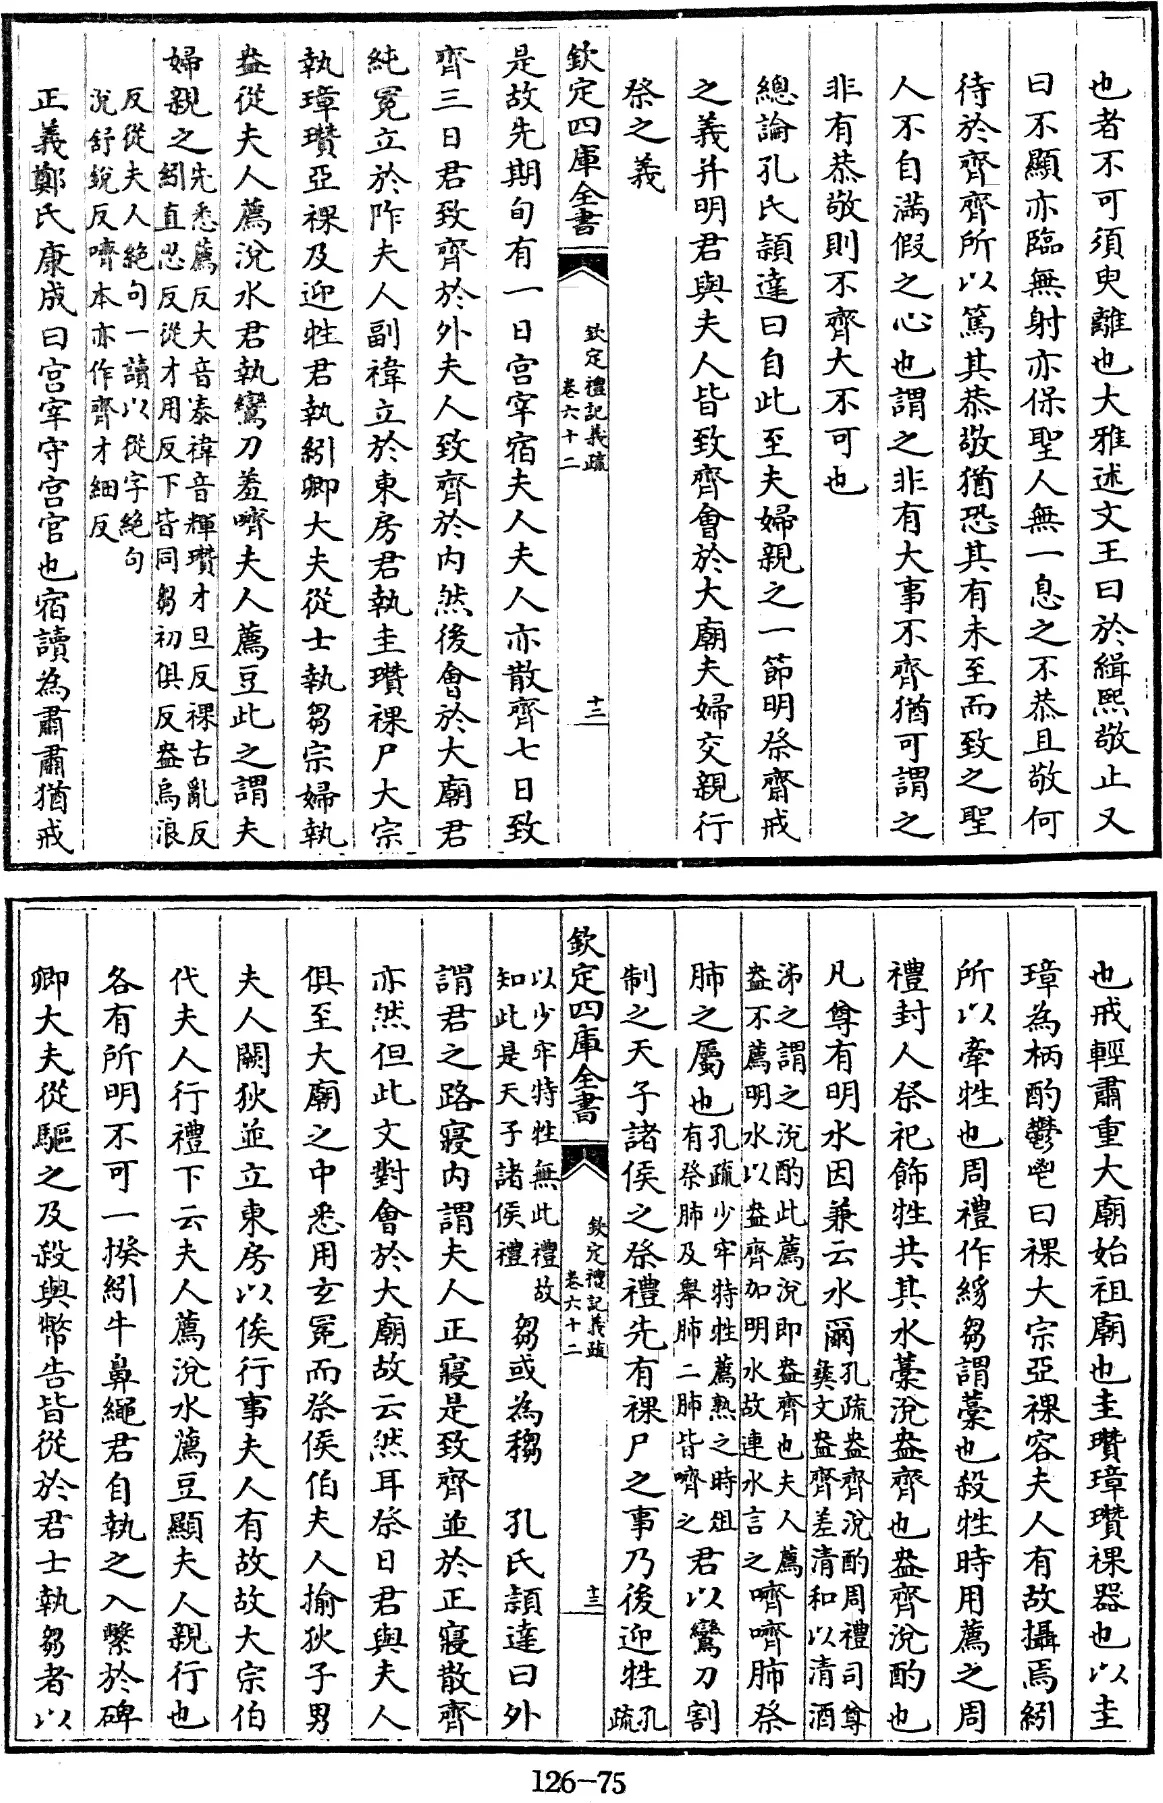 也者不可須臾離也大雅述文王曰於緝熙敬止又
曰不顯亦臨無射亦保聖人無一息之不恭且敬何
待於齊齊所以篤其恭敬猶恐其有未至而致之聖
人不自滿假之心也謂之非有大事不齊猶可謂之
非有恭敬則不齊大不可也
總論孔氏穎達曰自此至夫婦親之一節明祭齋戒
之義并明君與夫人皆致齊會於大廟夫婦交親行
祭之義
欽定四庫全書
欽定禮記義疏
卷六十二
十二
是故先期旬有一日宮宰宿夫人夫人亦散齊七日致
齊三日君致齊於外夫人致齊於內然後會於大廟君
純冕立於阼夫人副褘立於東房君執圭瓚祼尸大宗
執璋瓚亞祼及迎牲君執紖卿大夫從士執芻宗婦執
盎從夫人薦涚水君執鸞刀羞嚌夫人薦豆此之謂夫
婦親之
先悉薦反大音泰褘音輝瓚才旦反祼古亂反
紖直忍反從才用反下皆同芻初俱反盎烏浪
反從夫人絶句一讀以從字絶句
涚舒銳反嚌本亦作齊才細反
正義鄭氏康成曰宮宰守宮官也宿讀為肅肅猶戒
也戒輕肅重大廟始祖廟也圭瓚璋瓚祼器也以圭
璋為柄酌鬱鬯曰祼大宗亞祼容夫人有故攝焉紖
所以牽牲也周禮作絼芻謂藁也殺牲時用薦之周
禮封人祭祀飾牲共其水藁涚盎齊也盎齊涚酌也
凡尊有明水因兼云水爾
孔疏盎齊涚酌周禮司尊
彝文盎齊差清和以清酒
泲之謂之涚酌此薦涚即盎齊也夫人薦
盎不薦明水以盎齊加明水故連水言之
嚌嚌肺祭
肺之屬也
孔疏少牢特牲薦熟之時俎
有祭肺及舉肺二肺皆嚌之
君以鸞刀割
制之天子諸侯之祭禮先有祼尸之事乃後迎牲
孔
疏
欽定四庫全書
欽定禮記義疏
卷六十二
十三
以少牢特牲無此禮故
知此是天子諸侯禮
芻或為䅳　孔氏穎達曰外
謂君之路寢內謂夫人正寢是致齊並於正寢散齊
亦然但此文對會於大廟故云然耳祭日君與夫人
俱至大廟之中悉用玄冕而祭侯伯夫人揄狄子男
夫人闕狄並立東房以俟行事夫人有故故大宗伯
代夫人行禮下云夫人薦涚水薦豆顯夫人親行也
各有所明不可一揆紖牛鼻繩君自執之入繫於碑
卿大夫從驅之及殺與幣告皆從於君士執芻者以
126-75